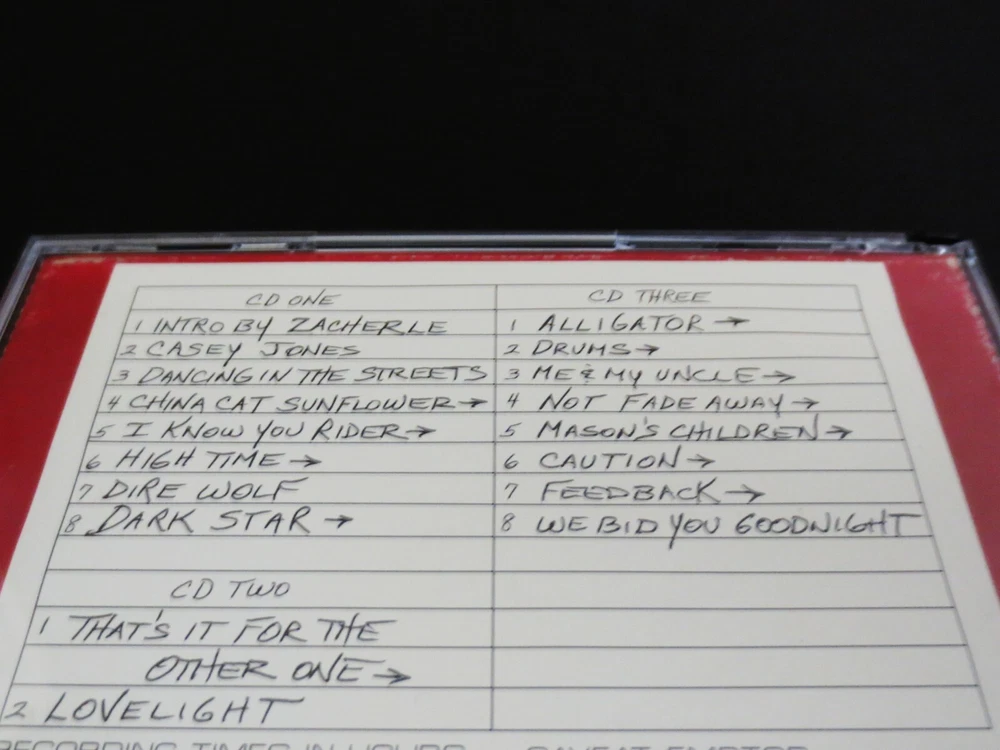 CD ONE
1 INTRO BY ZACHERLE
2 CASEY JONES
3 DANCING IN THE STREETS
4 CHINA CAT SUNFLOWER →
5 I KNOW YOU RIDER →
6 HIGH TIME →
7 DIRE WOLF
8 DARK STAR →
CD TWO
1 THAT'S IT FOR THE
OTHER ONE →
2 LOVELIGHT
CD THREE
1 ALLIGATOR →
2 DRUMS →
3 ME & MY UNCLE →
4 NOT FADE AWAY →
5 MASON'S CHILDREN →
6 CAUTION →
7 FEEDBACK →
8 WE BID YOU GOODNIGHT
RECORDING TIMES IN HOURS
CAVEAT EMPTOR